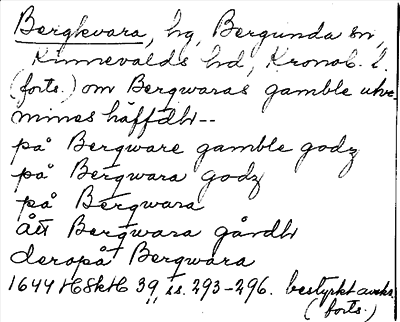 Bergkvara, hg, Bergunda sn,
Kinnevalds hd, Kronob. l.
(forts.) om Bergwaras gamble uhr-
mines häffdhr--
på Bergware gamble godz
på Bergwara godz
på Bergwara
ått Bergwara gårdh
deropå Bergwara
1644 HSkH 39 ss. 293-296. bestyrkt avskr.
(forts.)